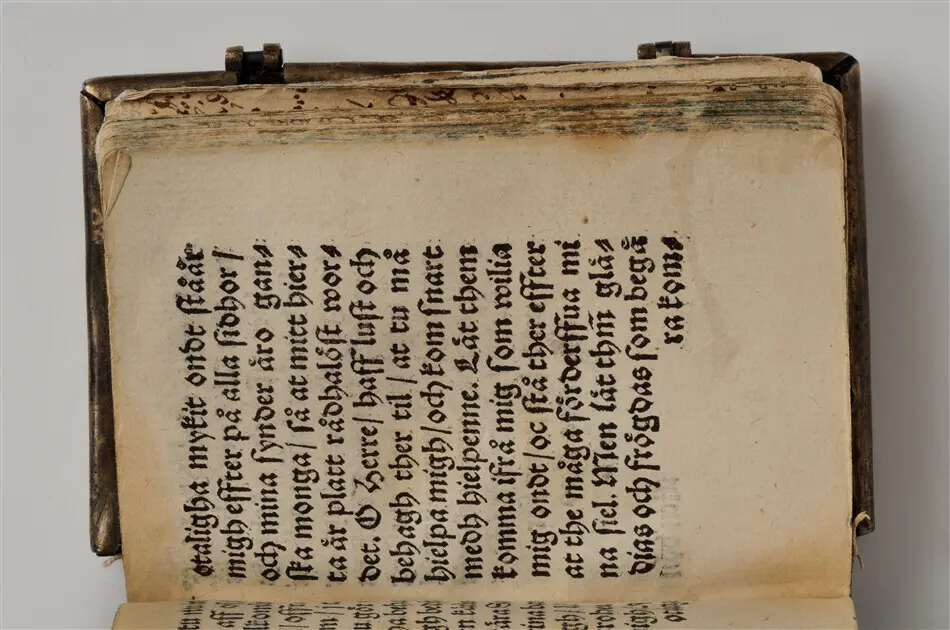 otaligha mykit ondt ståår
migh effter på alla sidhor/
och mina synder äro gan⸗
ska monga/ så at mitt hier⸗
ta är platt rådhalöst wor⸗
det. O Herre/ haff lust och
behagh ther til/ at tu må
hielpa migh/ och kom snart
medh hielpenne. Låt them
komma ifrå mig som wilia
mig ondt/ oc stå ther effter
at the måga förderffua mi
na siel. Men låt thm̃ glä⸗
dias och frögdas som begä
ra kom⸗